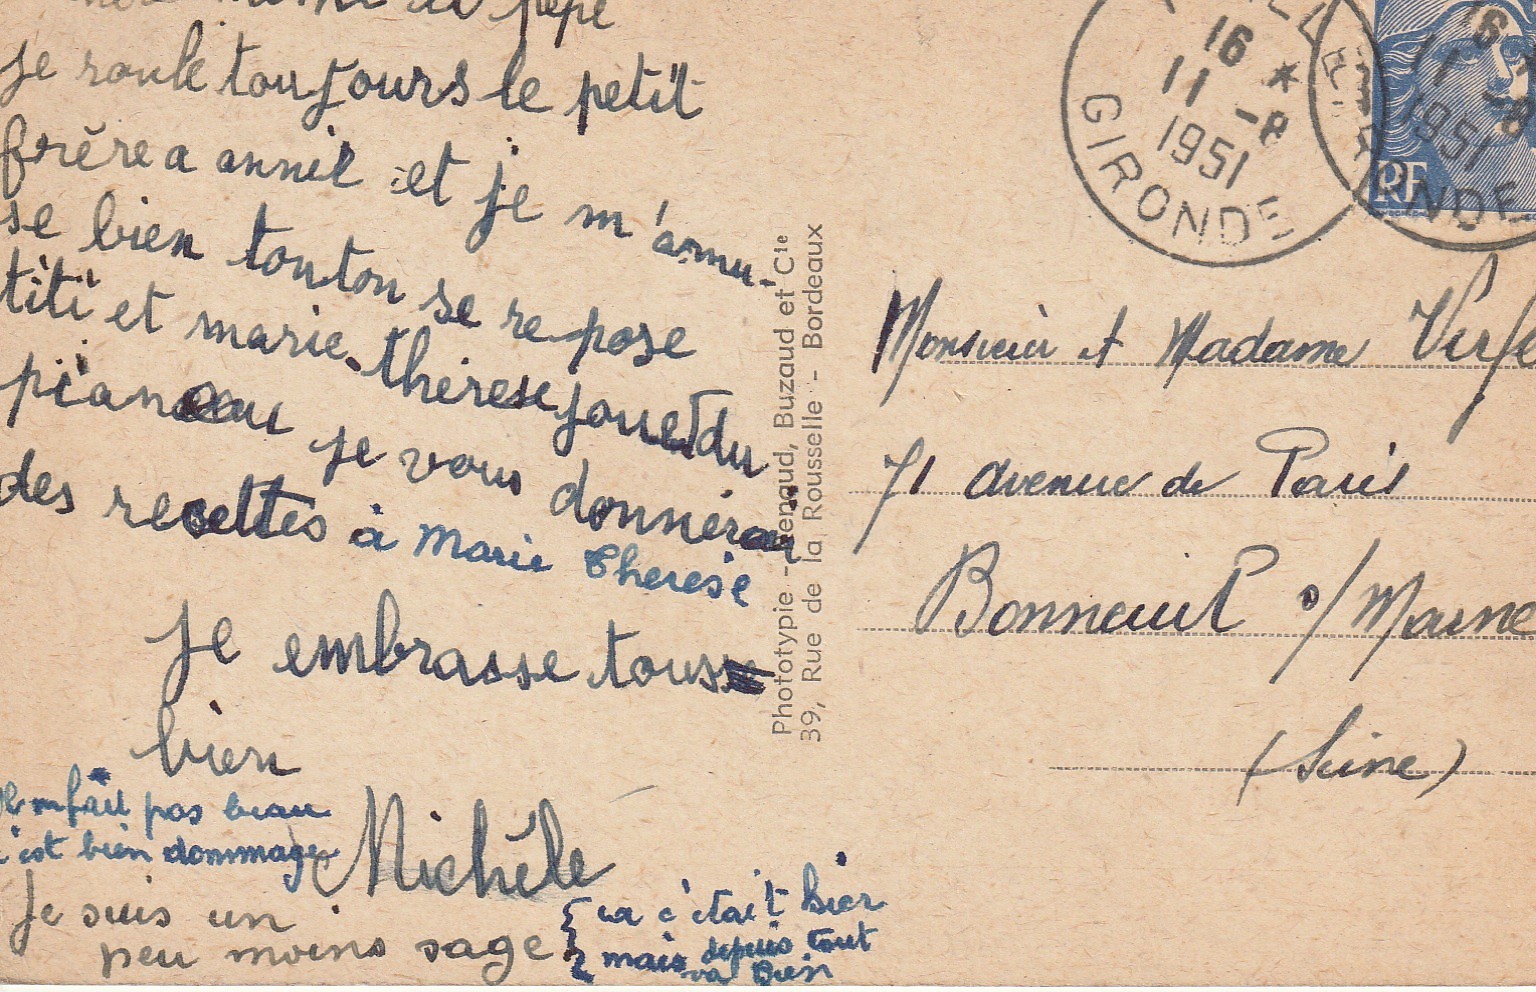 pépé
je roule toujours le petit
frère a annie et je m'amu-
se bien tonton se repose
titi et marie-thérèse joue du
piano je vous donnerai
des recettes à Marie Therese
Je embrasse tous
bien
Michèle
il fait pas beau
c'est bien dommage
Je suis un
peu moins sage
ça c'était hier
mais depuis tout
va bien
Phototypie - Renaud, Buzaud et Cie
39, Rue de la Rousselle - Bordeaux
16 *
11 -8
1951
GIRONDE
16
11 -8
1951
RF
Monsieur et Madame
71 avenue de Paris
Bonneuil s/Marne
(Seine)